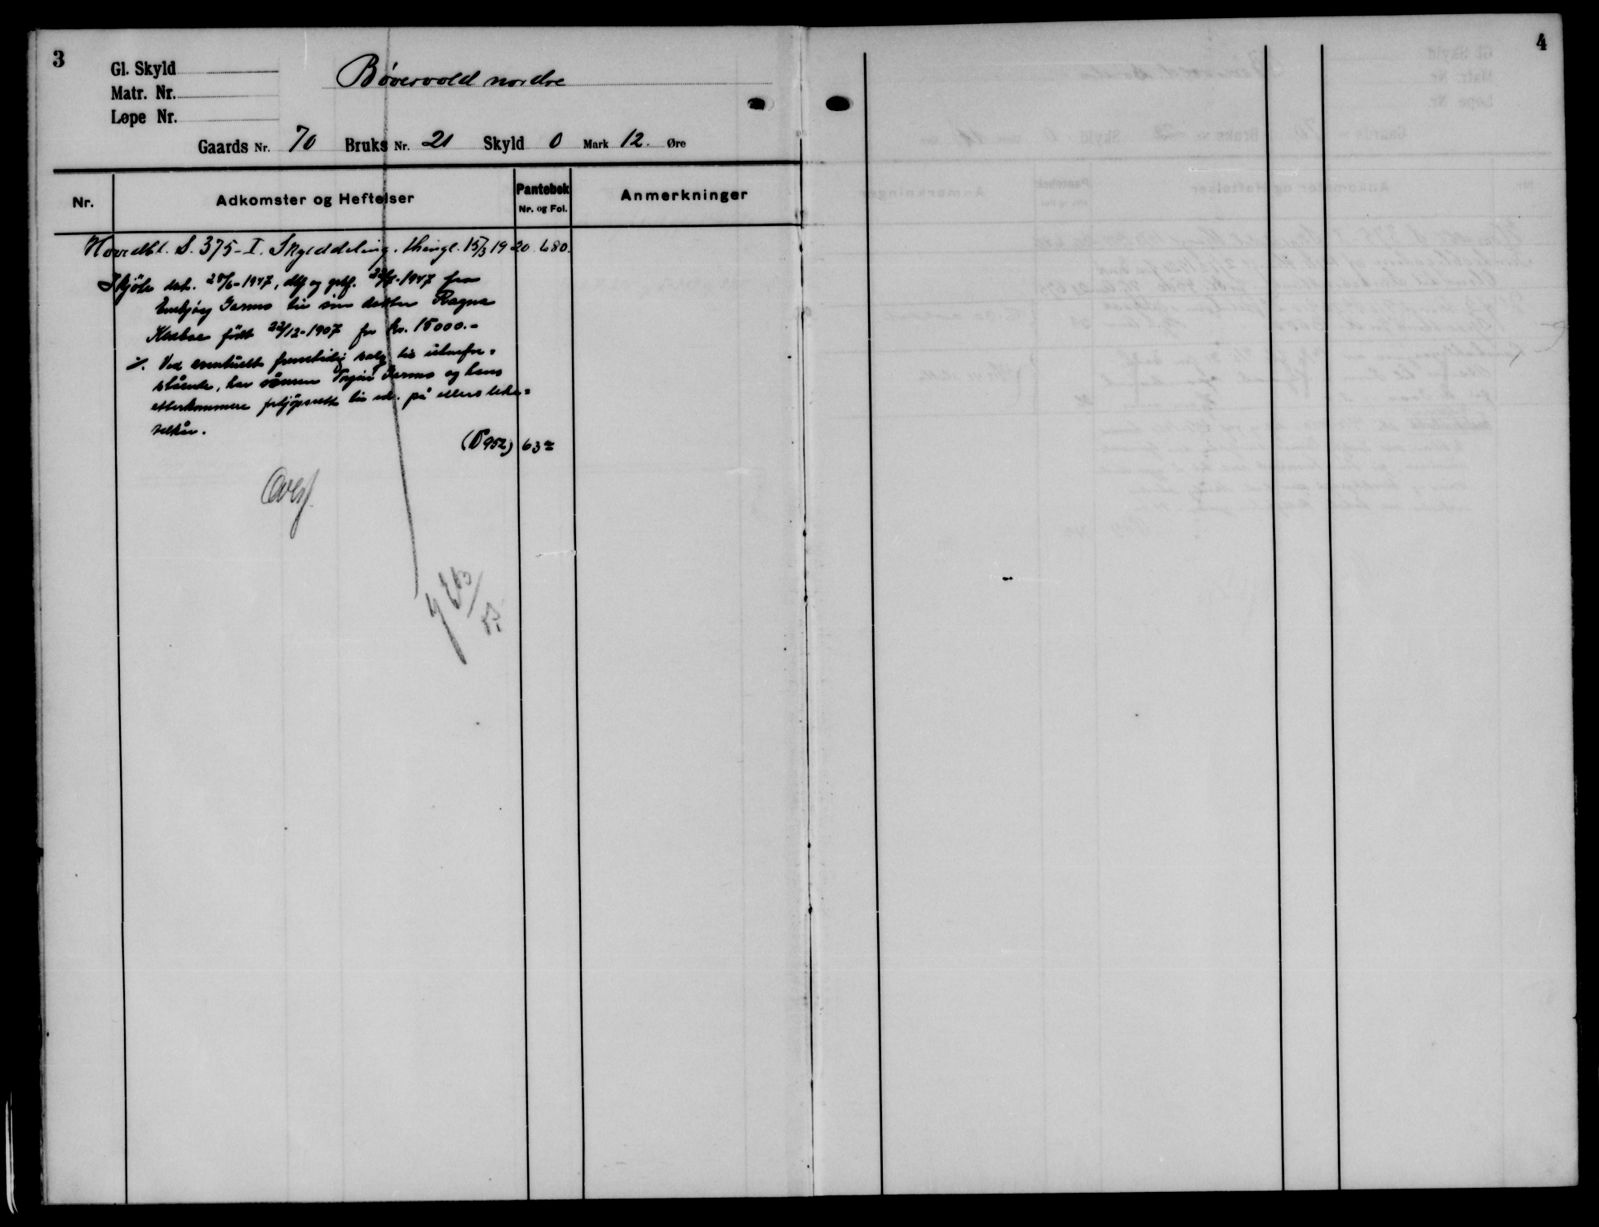 3
Gl. Skyld
Matr. Nr.
Løpe Nr.
Bøvervold nordre
Gaards Nr. 70 Bruks Nr. 21 Skyld 0 Mark 12. Øre
Nr.
Adkomster og Heftelser
Pantebok
Nr. og Fol.
Anmerkninger
Hovedbl. S. 375 - I. Skylddeling. thingl. 15/3 1920 680.
Skjöte dat. -1947, og -1947 fra
Garmo til sin datter Ragna
født 22/12-1907 for kr. 15000.-
%. Ved eventuelt fremtidig salg til utenfor=
stående, har sönnen Garmo og hans
etterkommere forkjöpsrett til på ellers like
vilkår.
(D 952) 63
Overf.
4